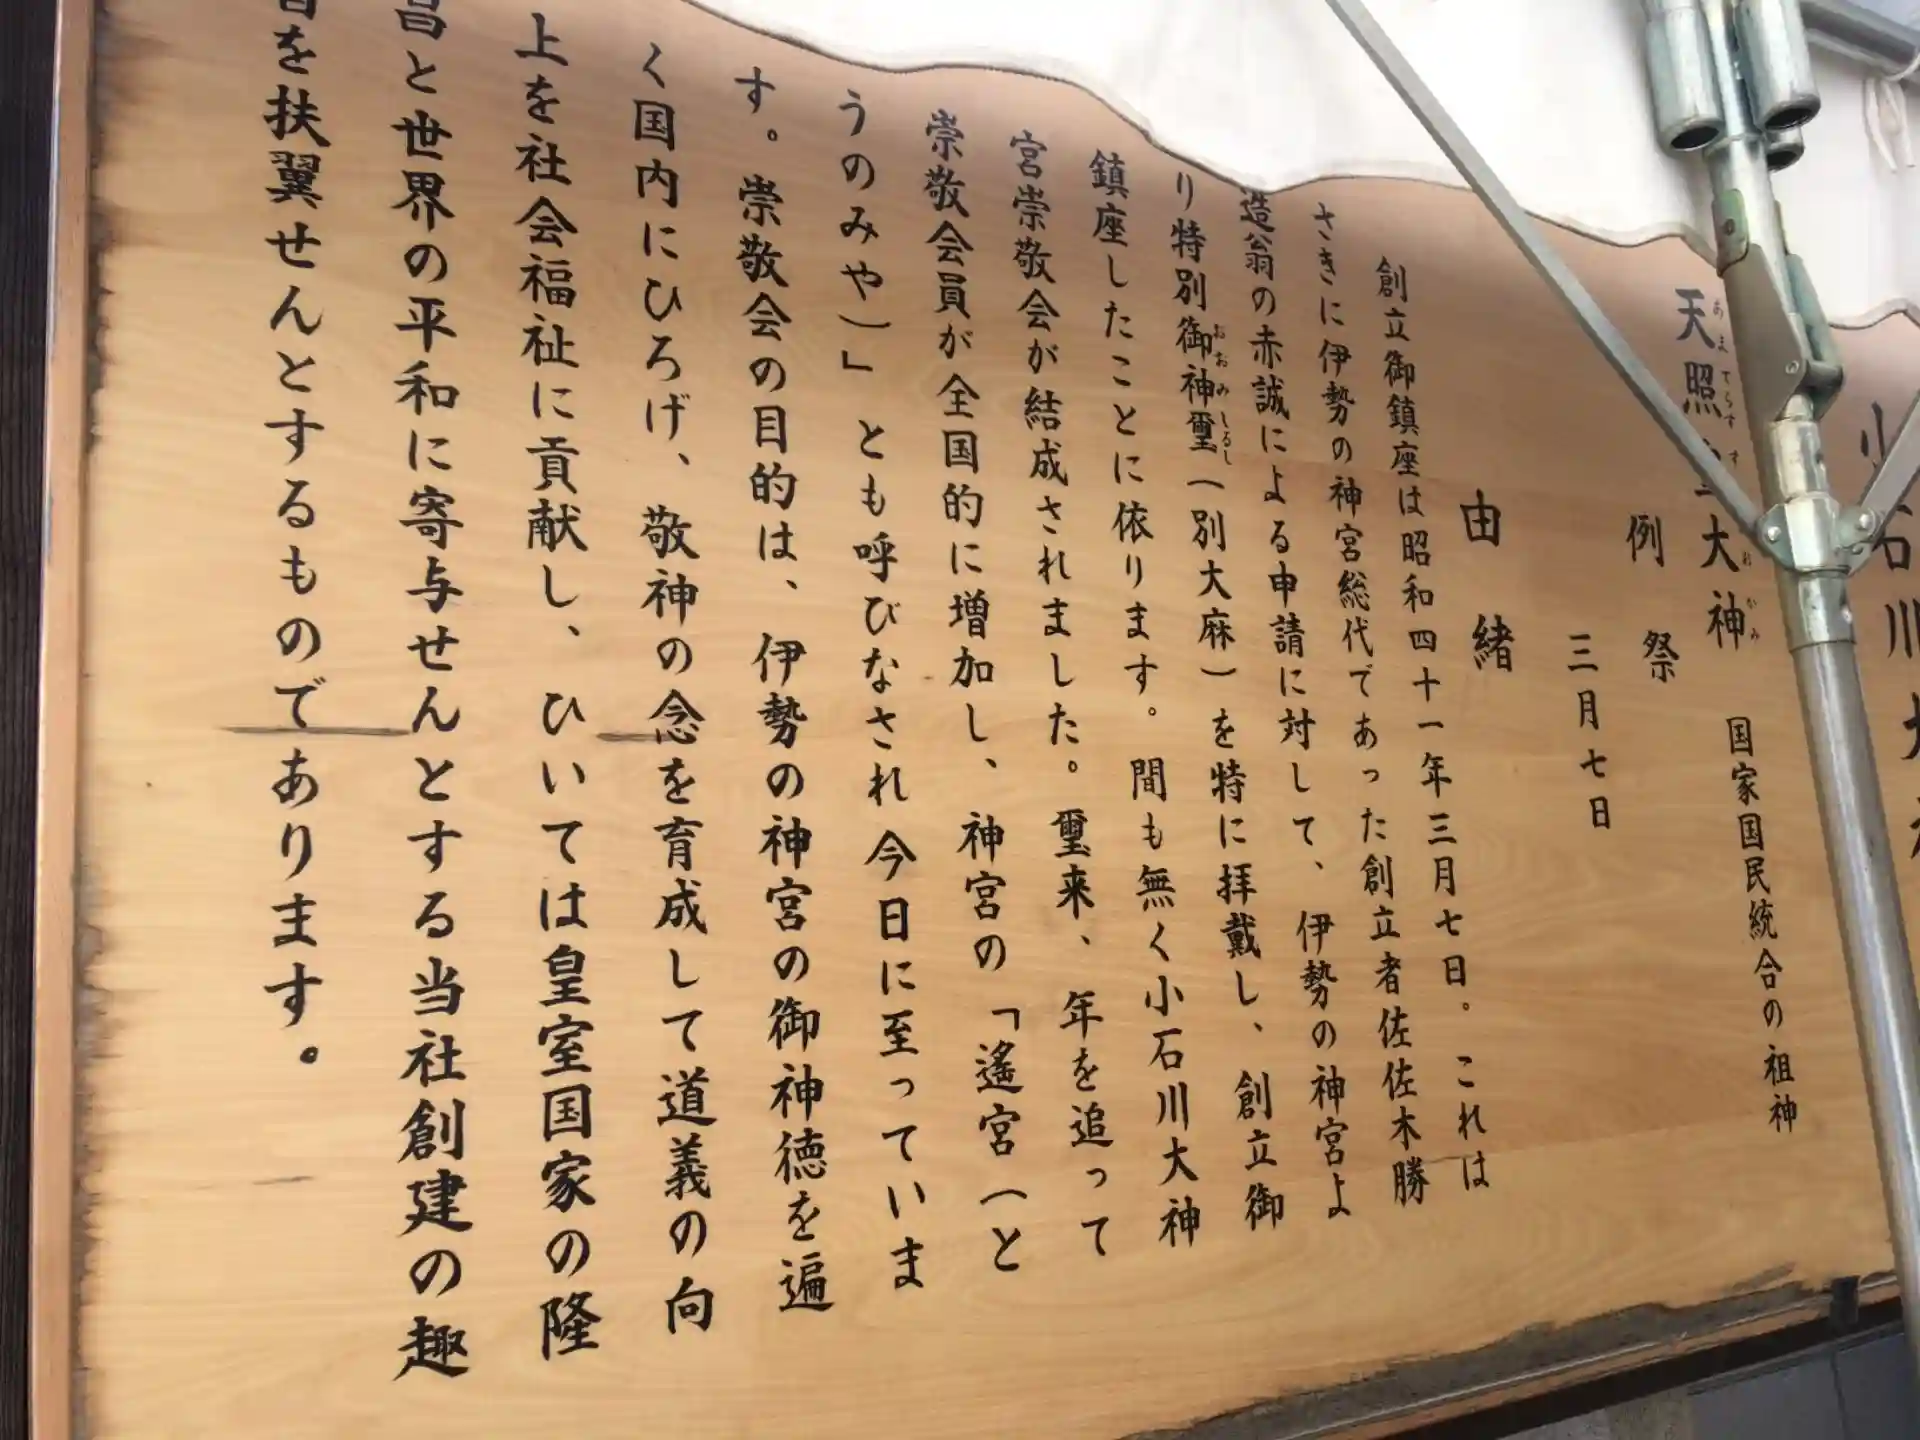 小石川大神
天照皇大神　国家国民統合の祖神
例祭
三月七日
由緒
創立御鎮座は昭和四十一年三月七日。これは
さきに伊勢の神宮総代であった創立者佐佐木勝
造翁の赤誠による申請に対して、伊勢の神宮よ
り特別御神璽（別大麻）を特に拝戴し、創立御
鎮座したことに依ります。間も無く小石川大神
宮崇敬会が結成されました。璽来、年を追って
崇敬会員が全国的に増加し、神宮の「遙宮（と
うのみや）」とも呼びなされ今日に至っていま
す。崇敬会の目的は、伊勢の神宮の御神徳を遍
く国内にひろげ、敬神の念を育成して道義の向
上を社会福祉に貢献し、ひいては皇室国家の隆
昌と世界の平和に寄与せんとする当社創建の趣
旨を扶翼せんとするものであります。